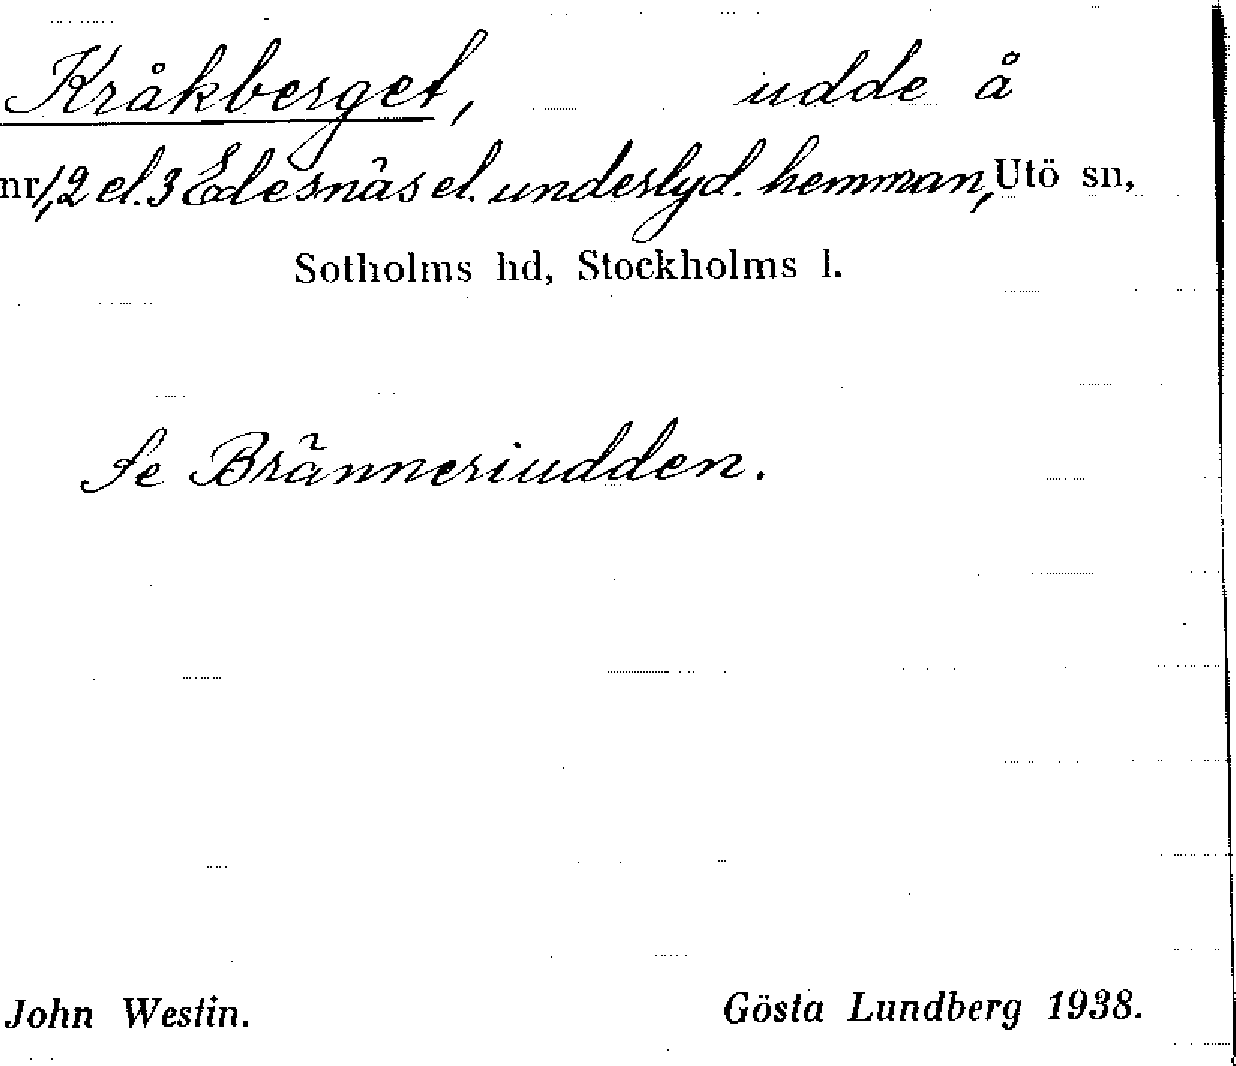 Kråkberget, udde å
nr 1, 2 el. 3 Edesnäs el. underlyd. hemman, Utö sn,
Sotholms hd, Stockholms l.
Se Bränneriudden.
John Westin. Gösta Lundberg 1938.